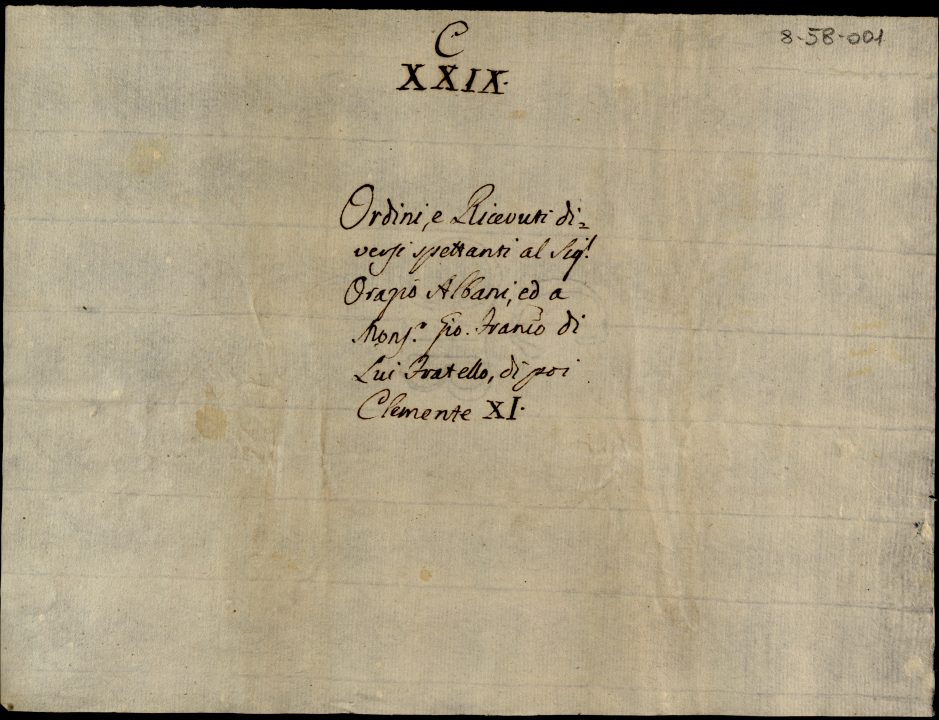 C
8-58-001
XXIX.
Ordini, e Ricevuti di=
versi spettanti al Sig.r
Orazio Albani, ed a
Mons.r Gio. Franco di
Lui Fratello, di poi
Clemente XI.